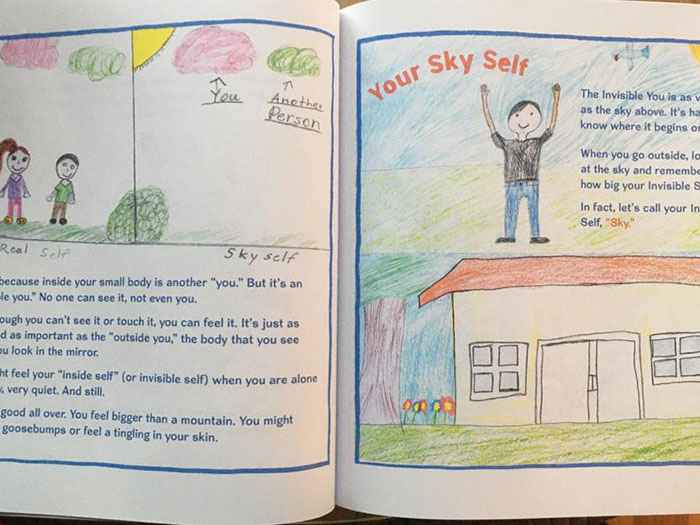 You
Another
Person
Real Self
Sky self
because inside your small body is another "you." But it's an
you." No one can see it, not even you.
you can't see it or touch it, you can feel it. It's just as
as important as the "outside you," the body that you see
look in the mirror.
feel your "inside self" (or invisible self) when you are alone
very quiet. And still.
good all over. You feel bigger than a mountain. You might
goosebumps or feel a tingling in your skin.
Your Sky Self
The Invisible You is as
as the sky above. It's
know where it begins
When you go outside,
at the sky and
how big your Invisible
In fact, let's call your
Self, "Sky."